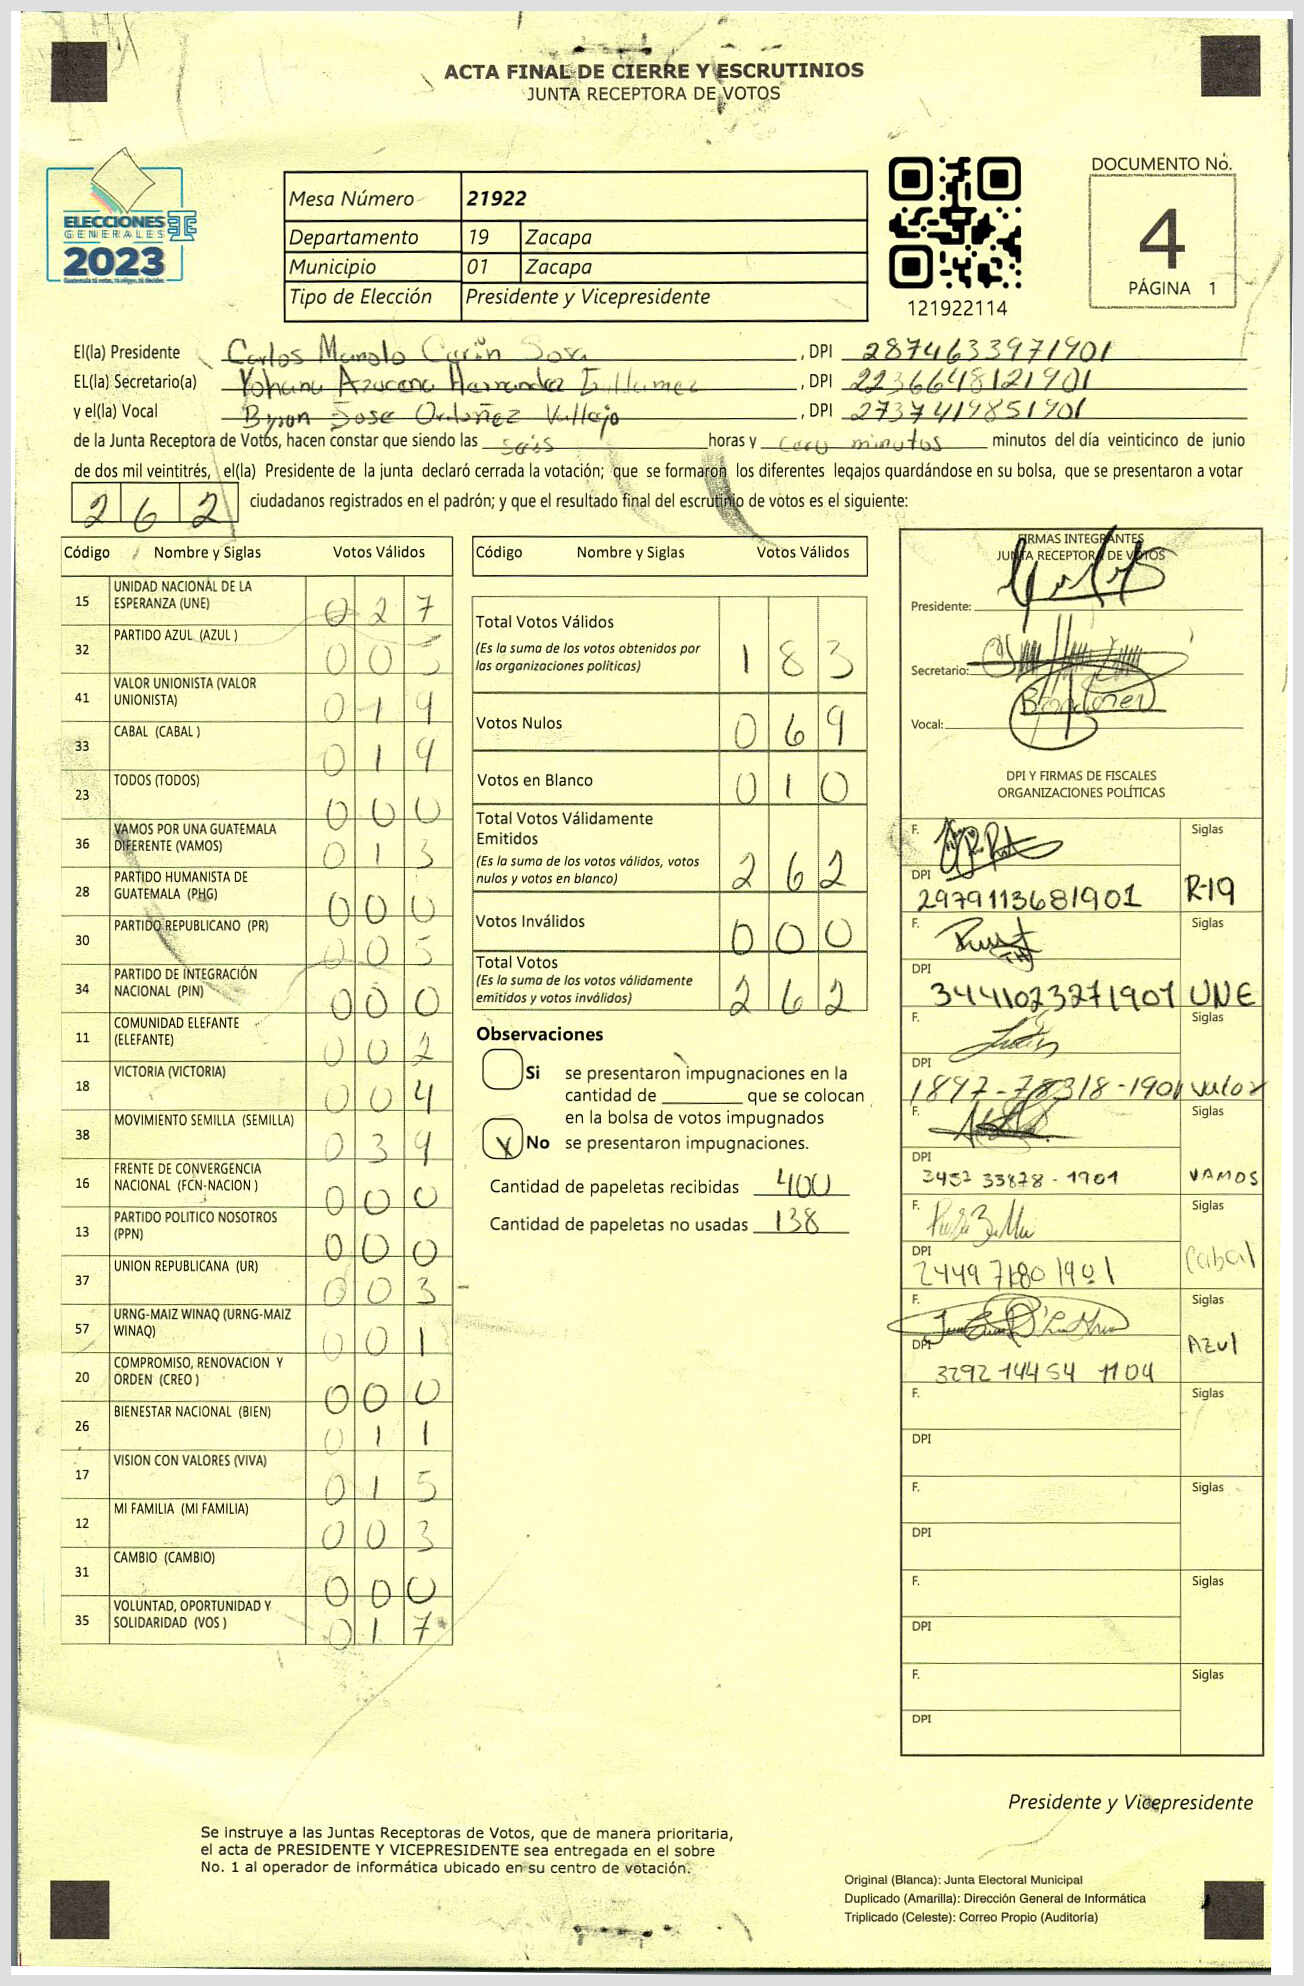 ACTA FINAL DE CIERRE Y ESCRUTINIOS
JUNTA RECEPTORA DE VOTOS
ELECCIONES
GENERALES
2023
Mesa Número 21922
Departamento 19 Zacapa
Municipio 01 Zacapa
Tipo de Elección Presidente y Vicepresidente
121922114
DOCUMENTO No.
4
PÁGINA 1
El(la) Presidente Carlos Manolo Sosa , DPI 2874633971901
EL(la) Secretario(a) Yohana Azucena Hernandez , DPI 2236648121901
y el(la) Vocal Byron Jose Ordoñez Vallejo , DPI 2737419851901
de la Junta Receptora de Votos, hacen constar que siendo las seis horas y cero minutos minutos del día veinticinco de junio
de dos mil veintitrés, el(la) Presidente de la junta declaró cerrada la votación; que se formaron los diferentes legajos quardándose en su bolsa, que se presentaron a votar
262 ciudadanos registrados en el padrón; y que el resultado final del escrutinio de votos es el siguiente:
Código Nombre y Siglas Votos Válidos
15 UNIDAD NACIONAL DE LA ESPERANZA (UNE) 027
32 PARTIDO AZUL (AZUL ) 005
41 VALOR UNIONISTA (VALOR UNIONISTA) 019
33 CABAL (CABAL ) 019
23 TODOS (TODOS) 000
36 VAMOS POR UNA GUATEMALA DIFERENTE (VAMOS) 013
28 PARTIDO HUMANISTA DE GUATEMALA (PHG) 000
30 PARTIDO REPUBLICANO (PR) 005
34 PARTIDO DE INTEGRACIÓN NACIONAL (PIN) 000
11 COMUNIDAD ELEFANTE (ELEFANTE) 002
18 VICTORIA (VICTORIA) 004
38 MOVIMIENTO SEMILLA (SEMILLA) 039
16 FRENTE DE CONVERGENCIA NACIONAL (FCN-NACION ) 000
13 PARTIDO POLITICO NOSOTROS (PPN) 000
37 UNION REPUBLICANA (UR) 003
57 URNG-MAIZ WINAQ (URNG-MAIZ WINAQ) 001
20 COMPROMISO, RENOVACION Y ORDEN (CREO ) 000
26 BIENESTAR NACIONAL (BIEN) 011
17 VISION CON VALORES (VIVA) 015
12 MI FAMILIA (MI FAMILIA) 003
31 CAMBIO (CAMBIO) 000
35 VOLUNTAD, OPORTUNIDAD Y SOLIDARIDAD (VOS ) 017
Código Nombre y Siglas Votos Válidos
Total Votos Válidos 183
(Es la suma de los votos obtenidos por
las organizaciones políticas)
Votos Nulos 069
Votos en Blanco 010
Total Votos Válidamente
Emitidos 262
(Es la suma de los votos válidos, votos
nulos y votos en blanco)
Votos Inválidos 000
Total Votos 262
(Es la suma de los votos válidamente
emitidos y votos inválidos)
Observaciones
Si se presentaron impugnaciones en la
cantidad de ________ que se colocan
en la bolsa de votos impugnados
X No se presentaron impugnaciones.
Cantidad de papeletas recibidas 400
Cantidad de papeletas no usadas 138
FIRMAS INTEGRANTES
JUNTA RECEPTORA DE VOTOS
Presidente:
Secretario:
Vocal:
DPI Y FIRMAS DE FISCALES
ORGANIZACIONES POLÍTICAS
F. Siglas
DPI
2979113681901 R-19
F. Siglas
DPI
3441023271901 UNE
F. Siglas
DPI
1897-78318-1901 valor
F. Siglas
DPI
3452 33878-1901 VAMOS
F. Siglas
DPI
2449 7180 1901 Cabal
F. Siglas
DPI
3292 14454 1104 Azul
F. Siglas
DPI
F. Siglas
DPI
F. Siglas
DPI
F. Siglas
DPI
Presidente y Vicepresidente
Se instruye a las Juntas Receptoras de Votos, que de manera prioritaria,
el acta de PRESIDENTE Y VICEPRESIDENTE sea entregada en el sobre
No. 1 al operador de informática ubicado en su centro de votación.
Original (Blanca): Junta Electoral Municipal
Duplicado (Amarilla): Dirección General de Informática
Triplicado (Celeste): Correo Propio (Auditoría)